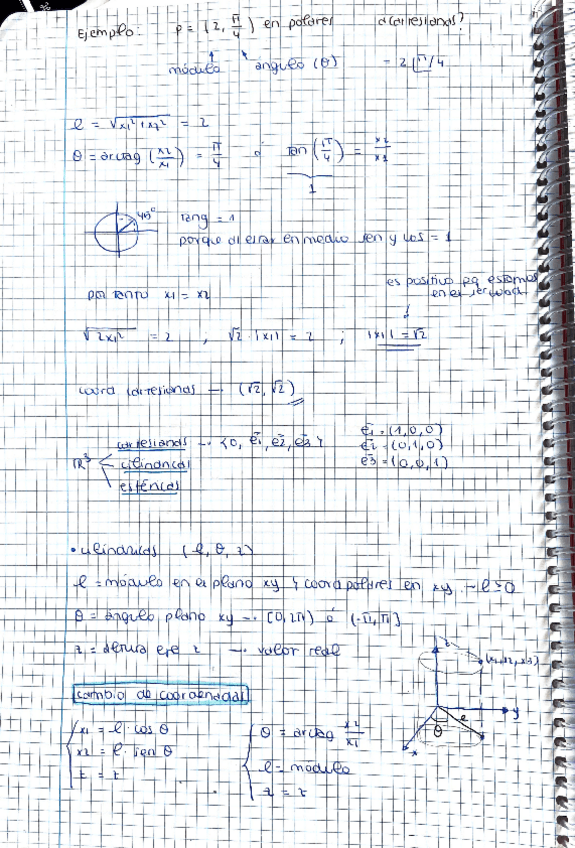 Ejemplo: P = (2, π/4) en polares a cartesianas?
módulo ángulo (θ) = 2 |π/4
ρ = √(x1² + x2²) = 2
θ = arctag (x2/x1) = π/4 ó tan (π/4) = x2/x1
1
45° tang = 1
porque al estar en medio sen y cos = 1
es positivo pq estamos
en el 1er cuad
por tanto x1 = x2
√(2x1²) = 2 , √2 · |x1| = 2 ; |x1| = √2
coord cartesianas → (√2, √2)
ℝ³ cartesianas → {0, e1, e2, e3}
cilíndricas
esféricas
e1 = (1,0,0)
e2 = (0,1,0)
e3 = (0,0,1)
• cilíndricas (ρ, θ, z)
ρ = módulo en el plano xy y coord polares en xy → ρ ≥ 0
θ = ángulo plano xy → [0, 2π) ó (-π, π]
z = altura eje z → valor real
z
(x1, x2, x3)
y
ρ
θ
x
cambio de coordenadas
x1 = ρ · cos θ
x2 = ρ · sen θ
z = z
θ = arctag x2/x1
ρ = módulo
z = z